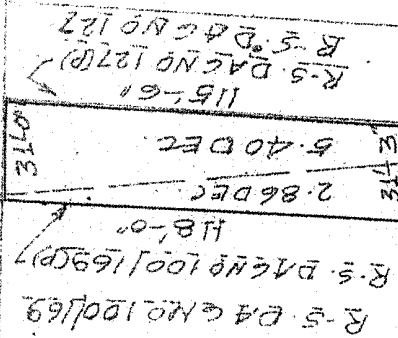 R-S. DAG NO 100/169
R.S. DAG NO 100/169(P)
118'-0"
2.86 DEC
31'-3"
5.40 DEC
31'-0"
115'-6"
R.S. DAG NO 127(P)
R-S. DAG NO 127